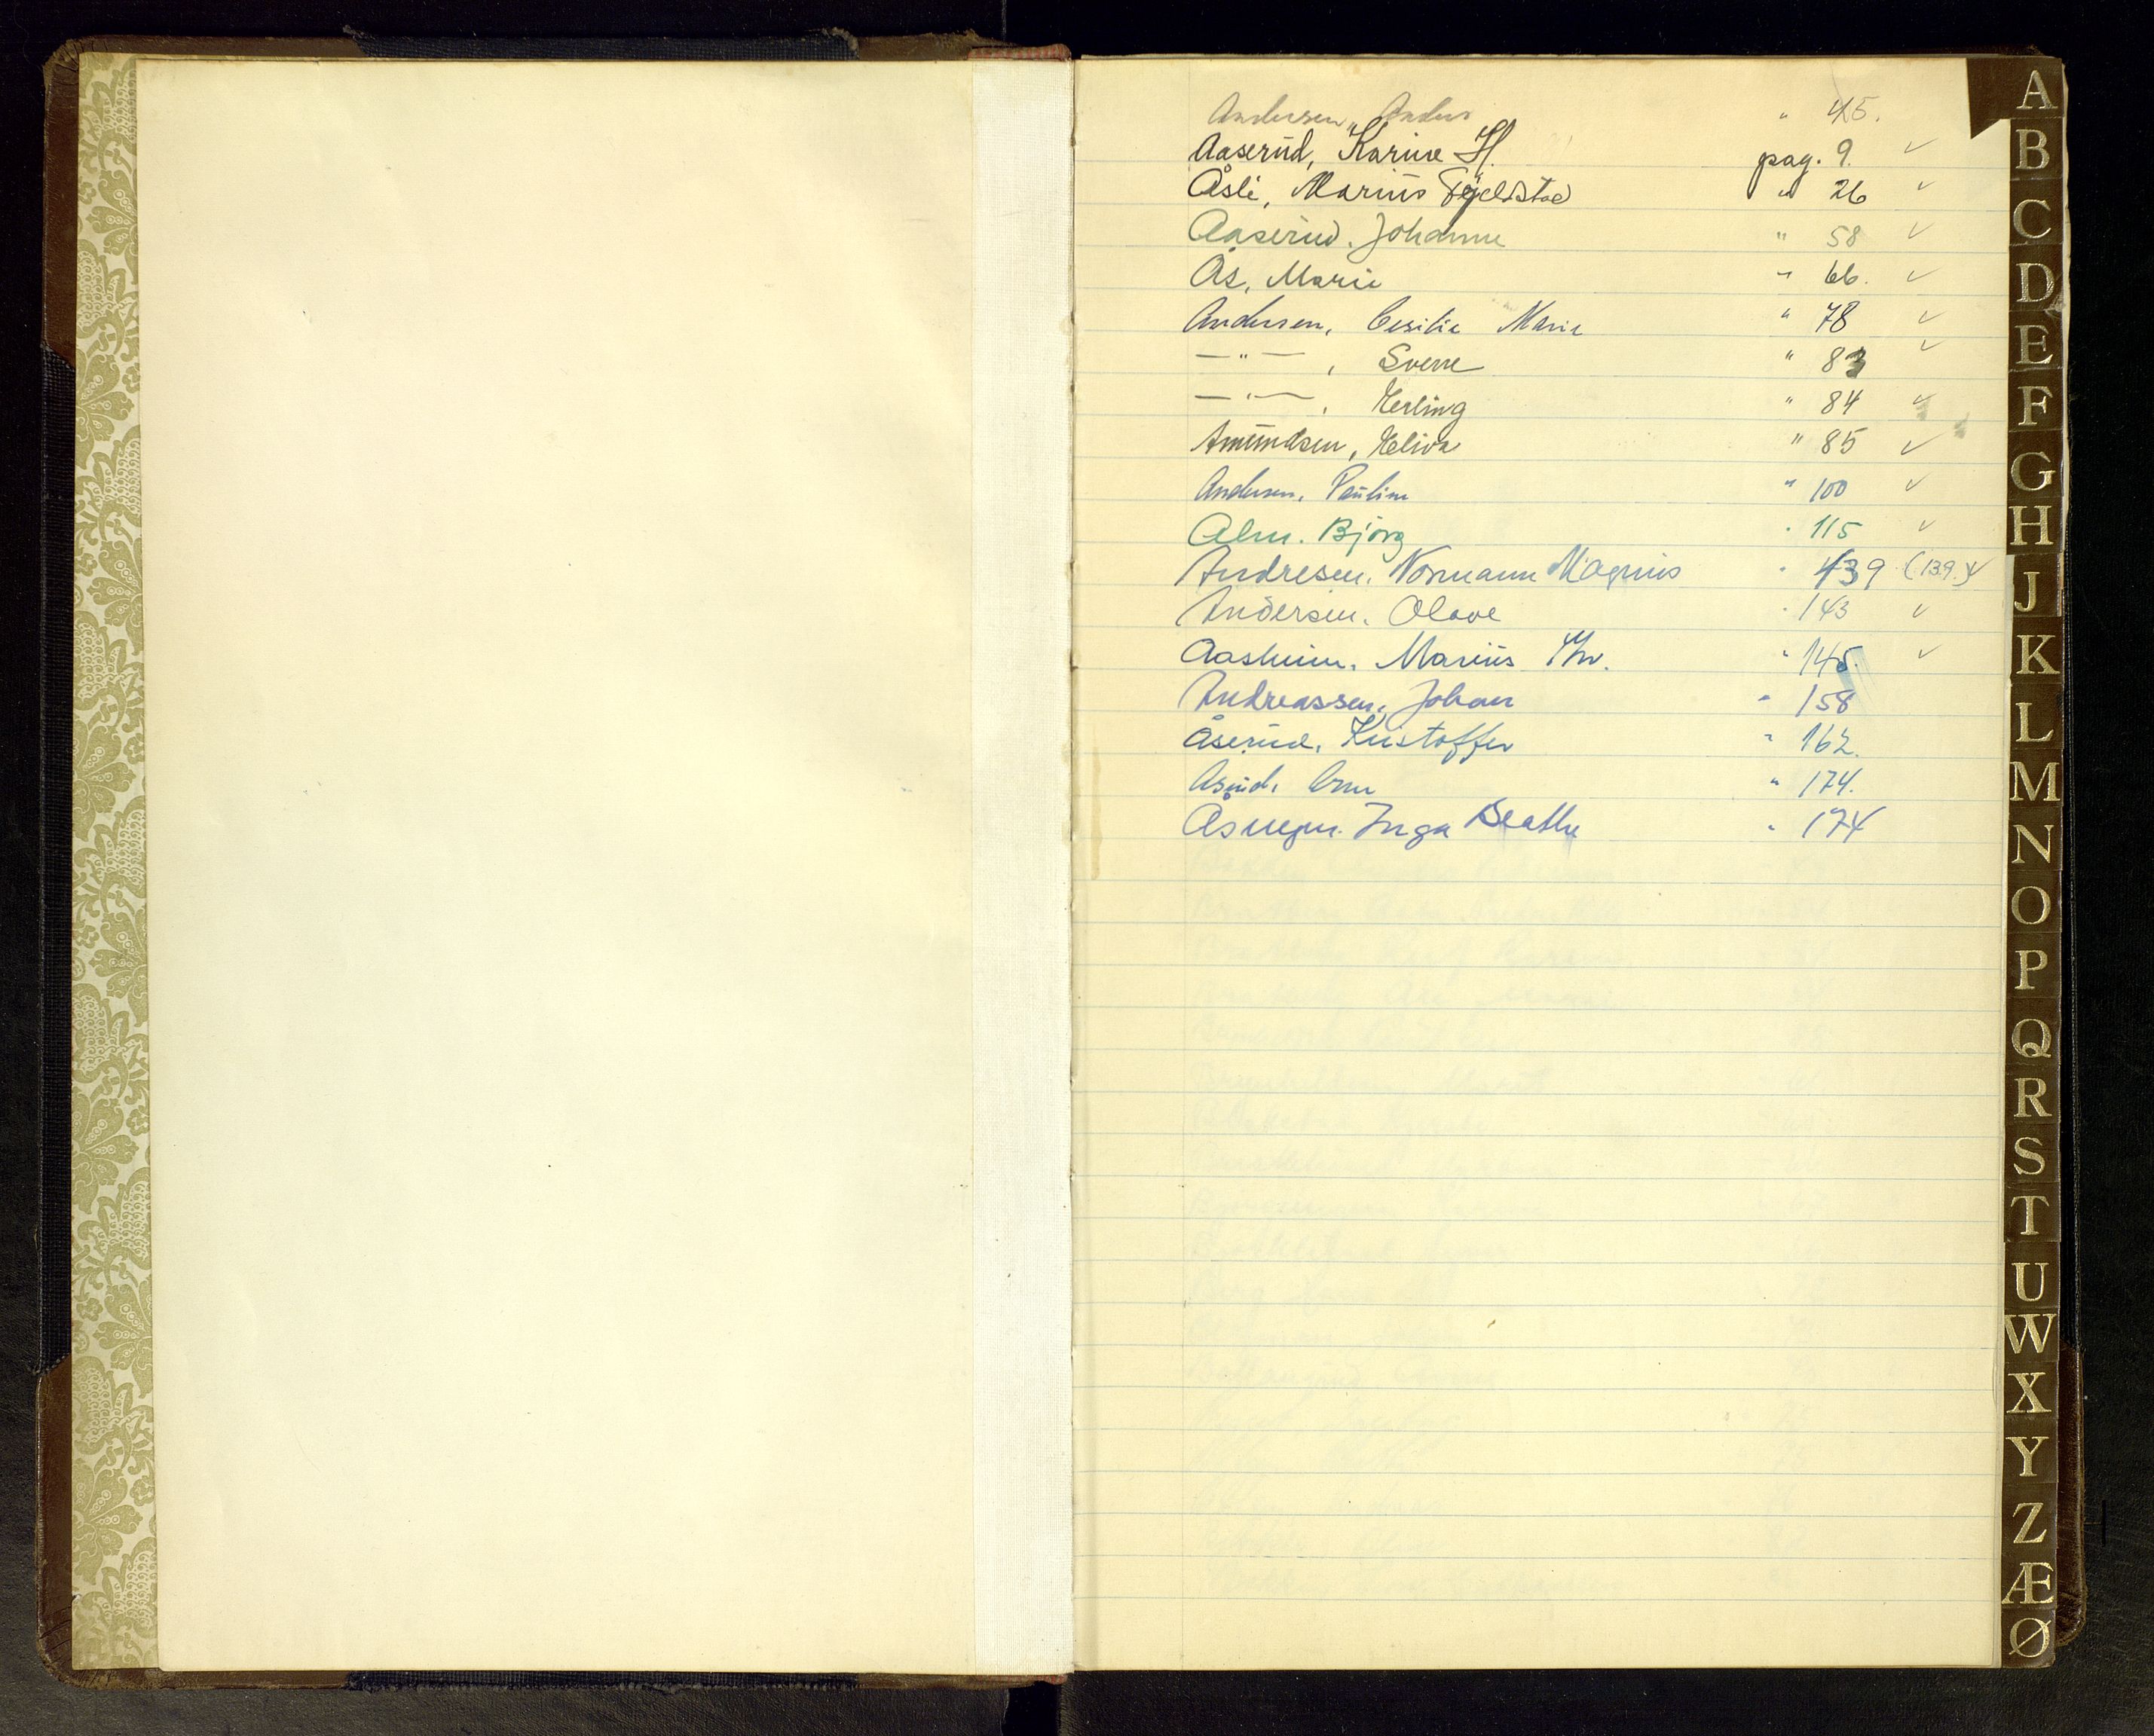 Andersen, Anders " 45.
Aaserud, Karine H. pag. 9. ✓
Åsli, Marius Fjeldstad " 26 ✓
Aaserud. Johanne " 58 ✓
Ås, Marie " 66. ✓
Andersen, Cesilie Marie " 78 ✓
— " — , Sverre " 83 ✓
— " — , Herling " 84 ✓
Amundsen, Helida " 85 ✓
Andersen, Pauline " 100 ✓
Alm. Bjørg " 115 ✓
Andresen, Normann Magnus " 439 (139.) ✓
Andersen, Olave " 143 ✓
Aasheim, Marius " 145. ✓
Andreassen, Johan " 158
Åserud, Kristoffer " 162.
Åsrud, " 174.
Inga Beathe " 174
A
B
C
D
E
F
G
H
J
K
L
M
N
O
P
Q
R
S
T
U
W
X
Y
Z
Æ
Ø